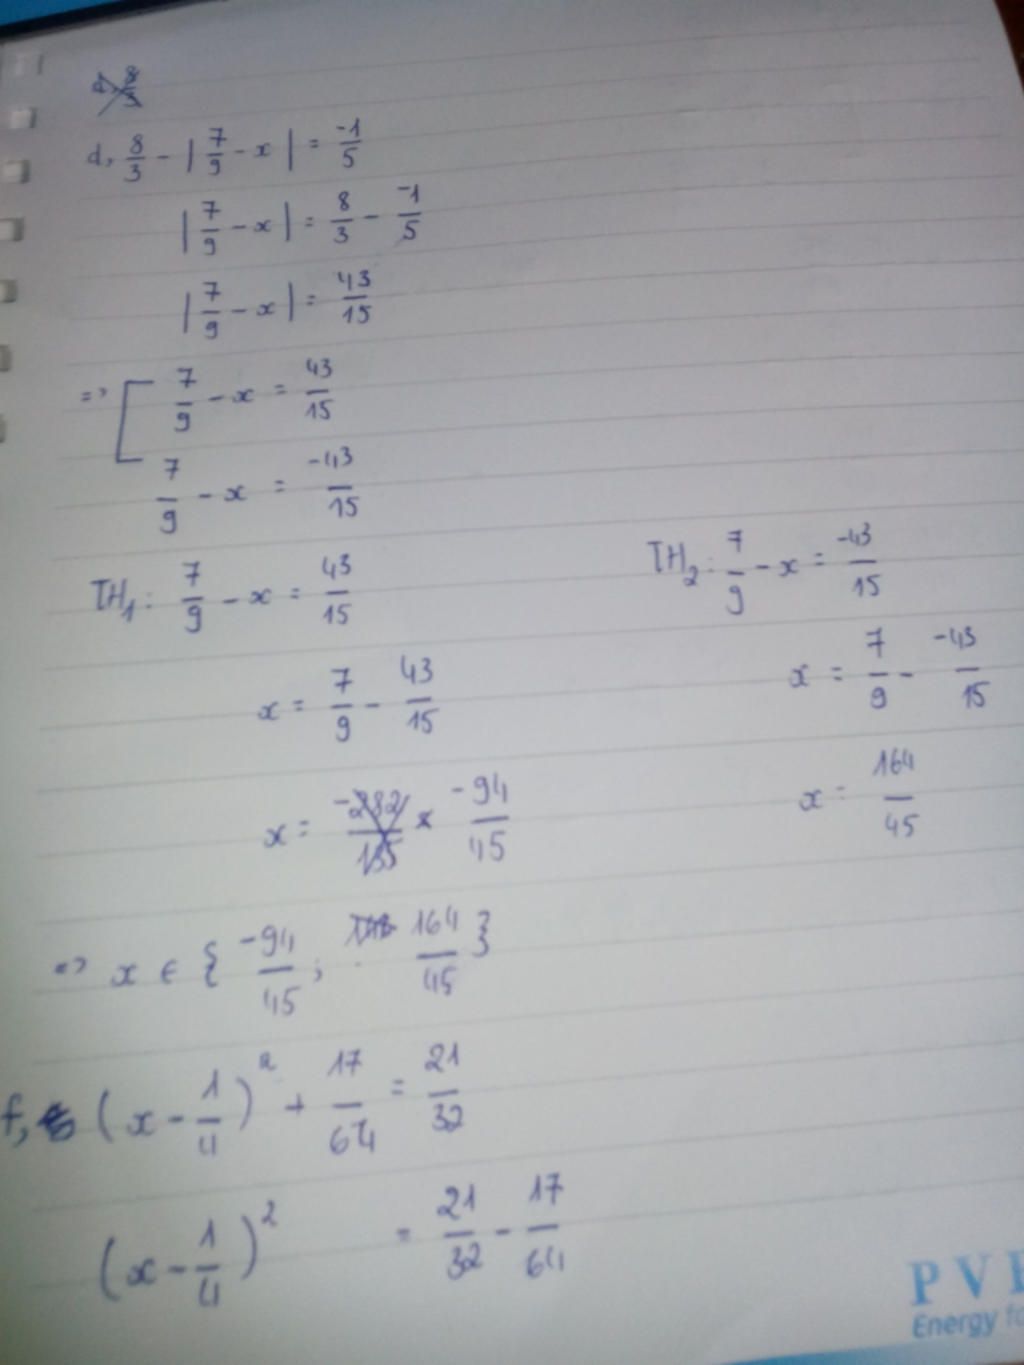 d, 8/3 - |7/9 - x| = -1/5
|7/9 - x| = 8/3 - -1/5
|7/9 - x| = 43/15
=> [ 7/9 - x = 43/15
7/9 - x = -43/15
TH1: 7/9 - x = 43/15
x = 7/9 - 43/15
x = -94/45
TH2: 7/9 - x = -43/15
x = 7/9 - -43/15
x = 164/45
=> x ∈ { -94/45 ; 164/45 }
f, (x - 1/4)² + 17/64 = 21/32
(x - 1/4)² = 21/32 - 17/64
PV
Energy fo